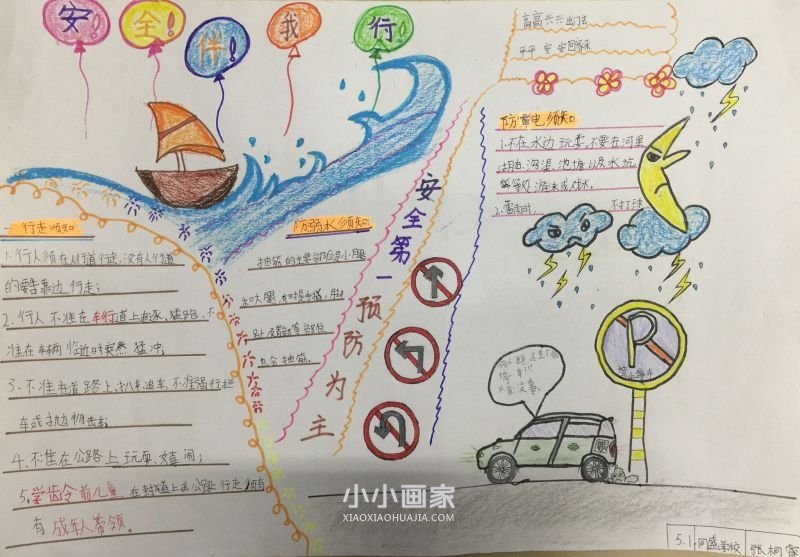 安全伴我行!
高高兴兴出门去
平平安安回家来
行走须知:
1.行人须在人行道行走,没有人行道
的要靠边行走;
2.行人不准在车行道上追逐、猛跑、不
准在车辆临近时突然猛冲;
3.不准在道路上扒车、追车、不准强行拦
车或抛物击车;
4.不准在公路上玩耍、嬉闹;
5.学龄前儿童在
行走须有
有成年人带领。
防溺水须知:
抽筋的主要部位是小腿
和大腿
也会抽筋。
安全第一
预防为主
防雷电须知:
1.不在水边玩耍,不要在河里
湖泊、沟渠、池塘以及水坑
等等处游泳或
2.雷雨时,不打球
P
小小画家
XIAOXIAOHUAJIA.COM
5.1
同盛学校